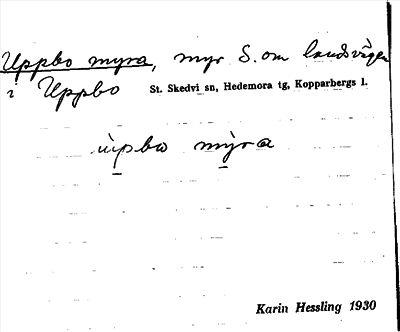 Uppbo myra, myr S. om landsvägen
i Uppbo St. Skedvi sn, Hedemora tg, Kopparbergs l.
ùpbω mỳra
Karin Hessling 1930